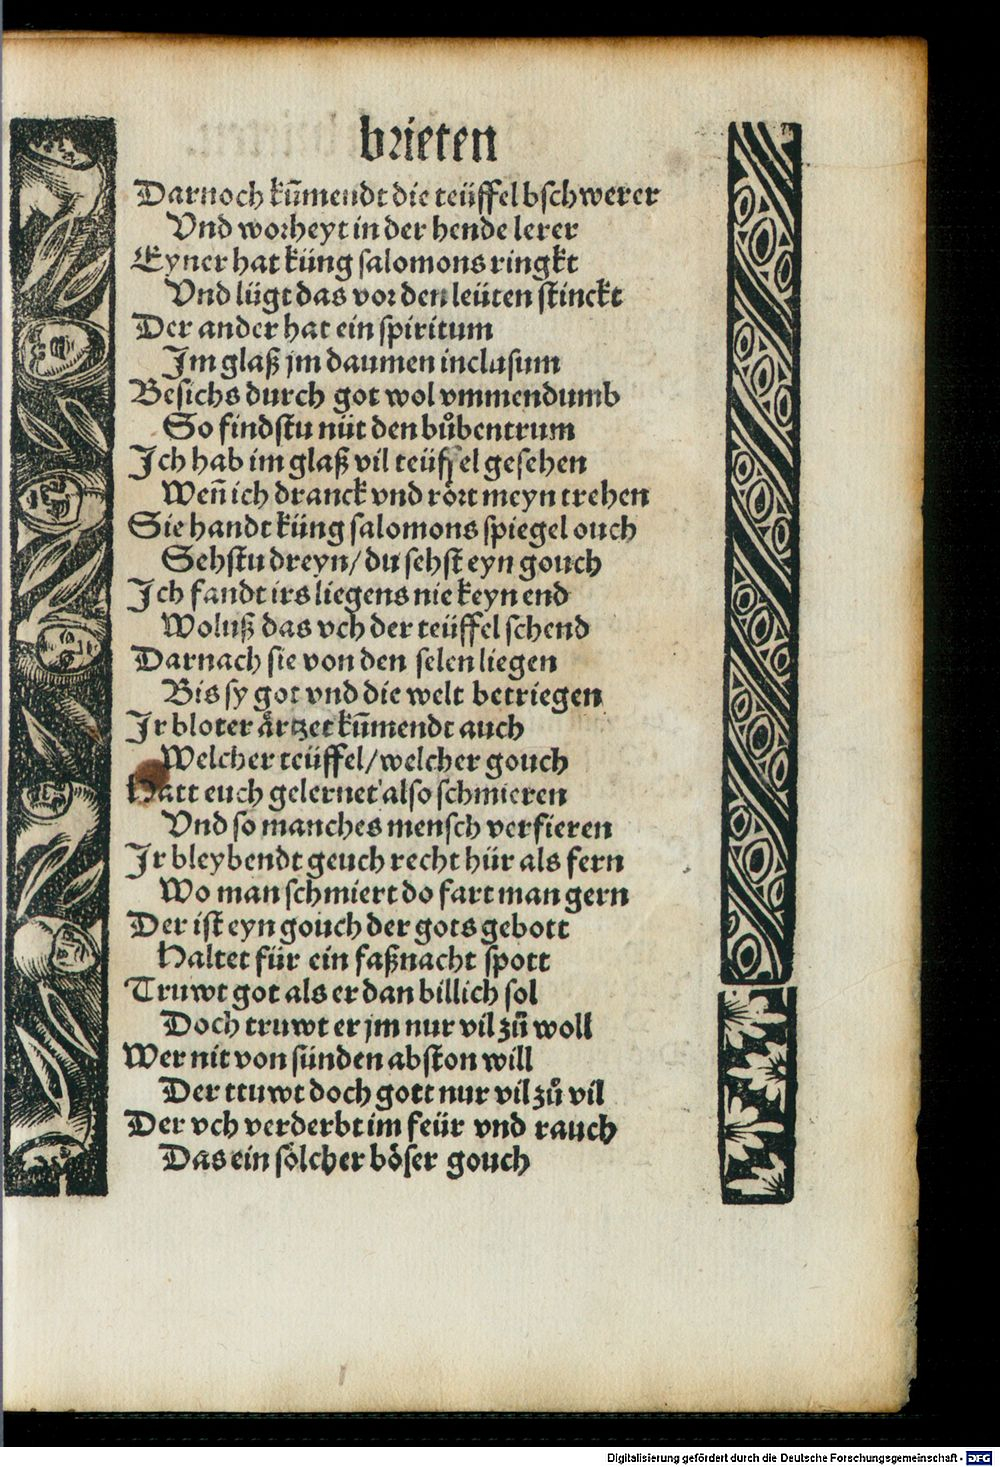 brieten
Darnoch kum̄endt die teüffel bschwerer
Vnd worheyt in der hende lerer
Eyner hat küng salomons ringkt
Vnd lügt das vor den leüten stinckt
Der ander hat ein spiritum
Im glaß jm daumen inclusum
Besichs durch got wol vmmendumb
So findstu nüt den bůbentrum
Ich hab im glaß vil teüffel gesehen
Wen̄ ich dranck vnd rört meyn trehen
Sie handt küng salomons spiegel ouch
Sehstu dreyn/ du sehst eyn gouch
Ich fandt irs liegens nie keyn end
Woluß das vch der teüffel schend
Darnach sie von den selen liegen
Bis sy got vnd die welt betriegen
Ir bloter ärtzet kum̄endt auch
Welcher teüffel/ welcher gouch
Hatt euch gelernet also schmieren
Vnd so manches mensch verfieren
Ir bleybendt geuch recht hür als fern
Wo man schmiert do fart man gern
Der ist eyn gouch der gots gebott
Haltet für ein faßnacht spott
Truwt got als er dan billich sol
Doch truwt er jm nur vil zů woll
Wer nit von sünden abston will
Der ttuwt doch gott nur vil zů vil
Der vch verderbt im feür vnd rauch
Das ein sölcher böser gouch
Digitalisierung gefördert durch die Deutsche Forschungsgemeinschaft - DFG